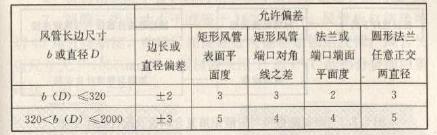 风管长边尺寸
b或直径D
允许偏差
边长或
直径偏差
矩形风管
表面平
面度
矩形风管
端口对角
线之差
法兰或
端口端面
平面度
圆形法兰
任意正交
两直径
b (D) ≤320
±2
3
3
2
3
320<b (D) ≤2000
±3
5
4
4
5